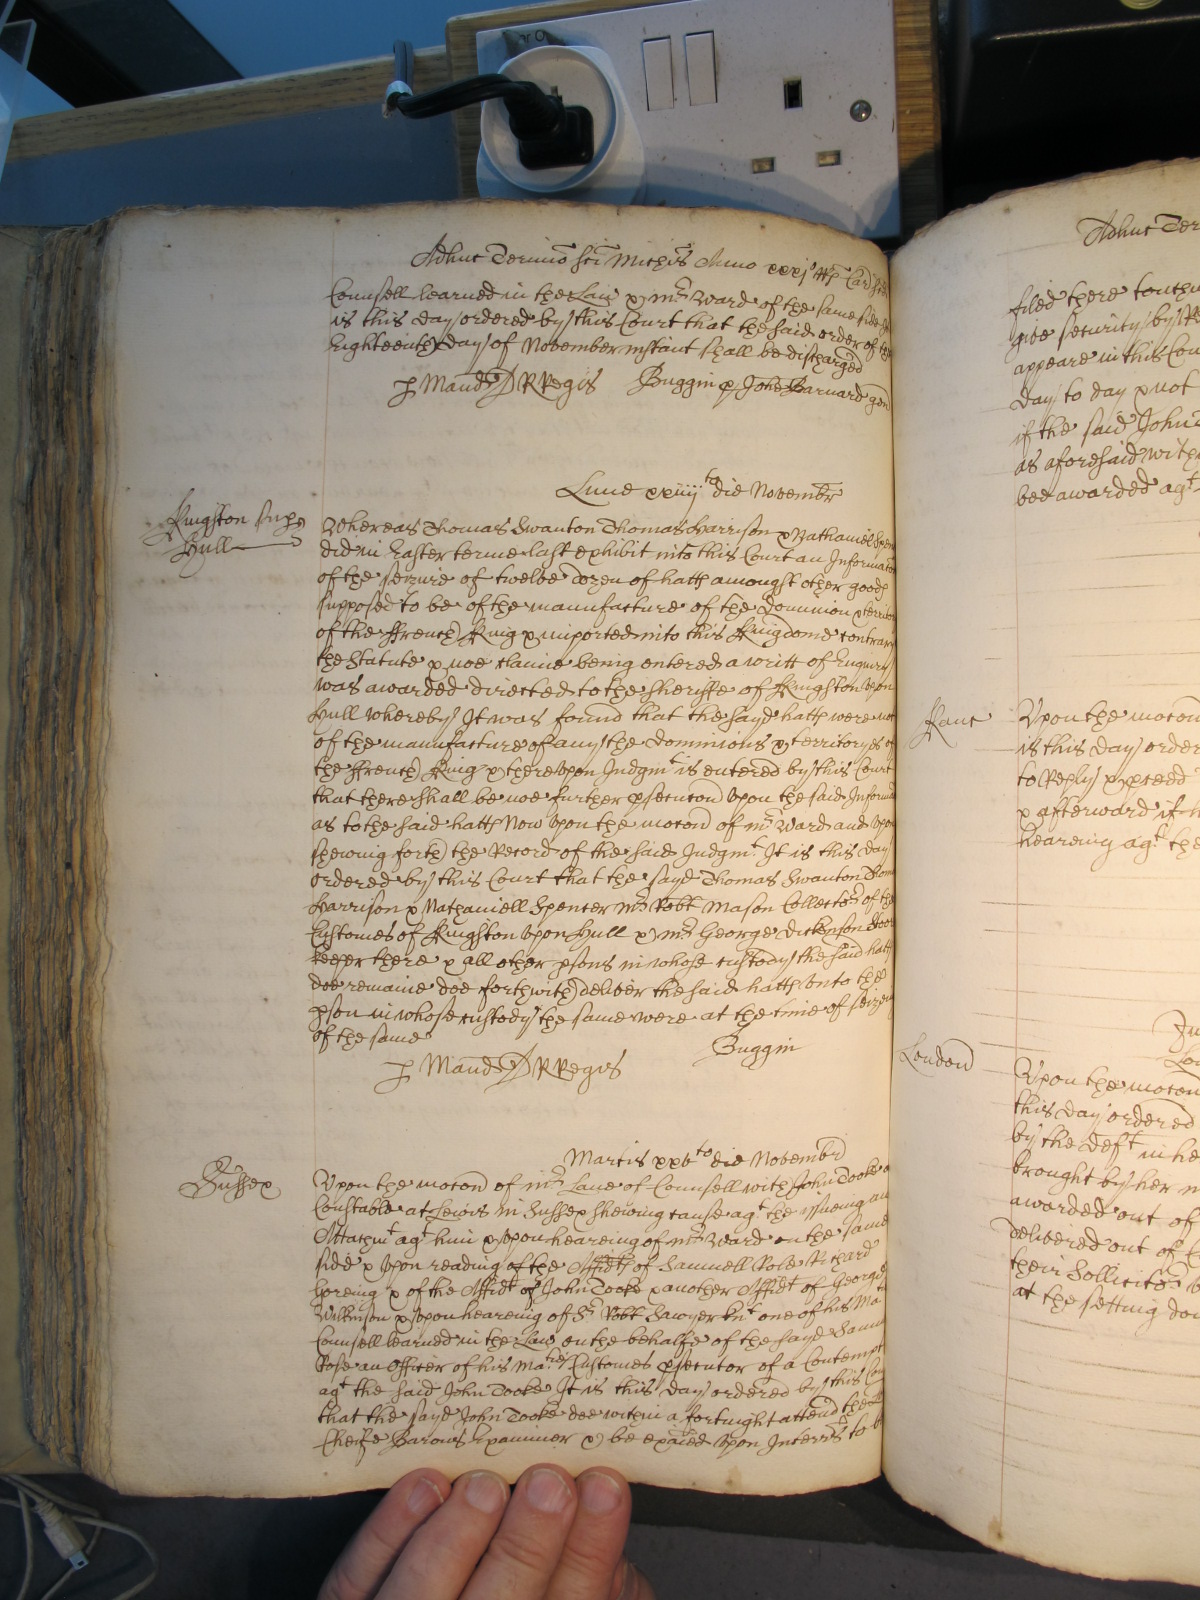 Adhuc Termio sci Michis Anno xxxj° RRs Car Scdi
Counsell learned in the Law & mr Ward of the same side It
is this day ordered by this Court that the said order of the
Eighteenth day of November instant shall be discharged
p Mand RRegis Buggin p Johem Barnard gen
Lune xxiiij to die Novembr
Kingston sup
Hull
Whereas Thomas Swanton Thomas Harrison & Nathaniel Spen
did in Easter terme last exhibit into this Court an Informacon
of the seizure of twelve dozen of hatts amongst other goods
supposed to be of the manufacture of the Dominion & territor
of the ffrench King & imported into this Kingdome contrary
the Statute & noe claime being entered a writt of Enquiry
was awarded directed to the Sheriffe of Kingston upon
Hull whereby It was found that the sayd hatts were not
of the manufacture of any the dominions & territoryes of
the ffrench King & thereupon Judgmt is entered by this Court
that there shall be noe further psecucon upon the said Informa
as to the said hatts Now upon the mocon of mr Ward and upon
shewing forth the Record of the said Judgmt It is this day
ordered by this Court that the sayd Thomas Swanton Thom
Harrison & Nathaniell Spencer mr Robt Mason Collector of the
Customes of Kingston upon Hull & mr George Dickenson Store
keeper there & all other psons in whose custody the said hatts
doe remaine doe forthwith deliver the said hatts unto the
pson in whose custody the same were at the time of seizure
of the same
p Mand RRegis Buggin
Martis xxvto die Novembr
Sussex
Upon the mocon of mr Lane of Counsell with John Tooke a
Constable at Lewis in Sussex shewing cause agt the issueing an
Attachmt agt him & upon hearing of mr Ward on the same
side & upon reading of the Affidts of Samuell Rose Richard
& of the Affidt of John Tooke & another Affidt of George
Wilkinson & upon hearing of Sr Robt Sawyer knt one of his Mats
Counsell learned in the Law on the behalfe of the sayd Samu
Rose an Officer of his Maties Customes psecutor of a Contempt
agt the said John Tooke It is this day ordered by this Cou
that the sayd John Tooke doe within a fortnight attend the
Cheife Barons Examiner & be exaied upon Interrs to b
Adhuc Ter
filed there touchi
give security by
appeare in this Cou
day to day & not
if the said John
as aforesaid with
bee awarded agt
Kanc
Upon the mocon
is this day order
to Reply & pceed
& afterward if h
hearing agt the
London
Upon the mocon
this day ordered
by the Deft in he
brought by her m
awarded out of
delivered out of
their Sollicitor
at the setting do